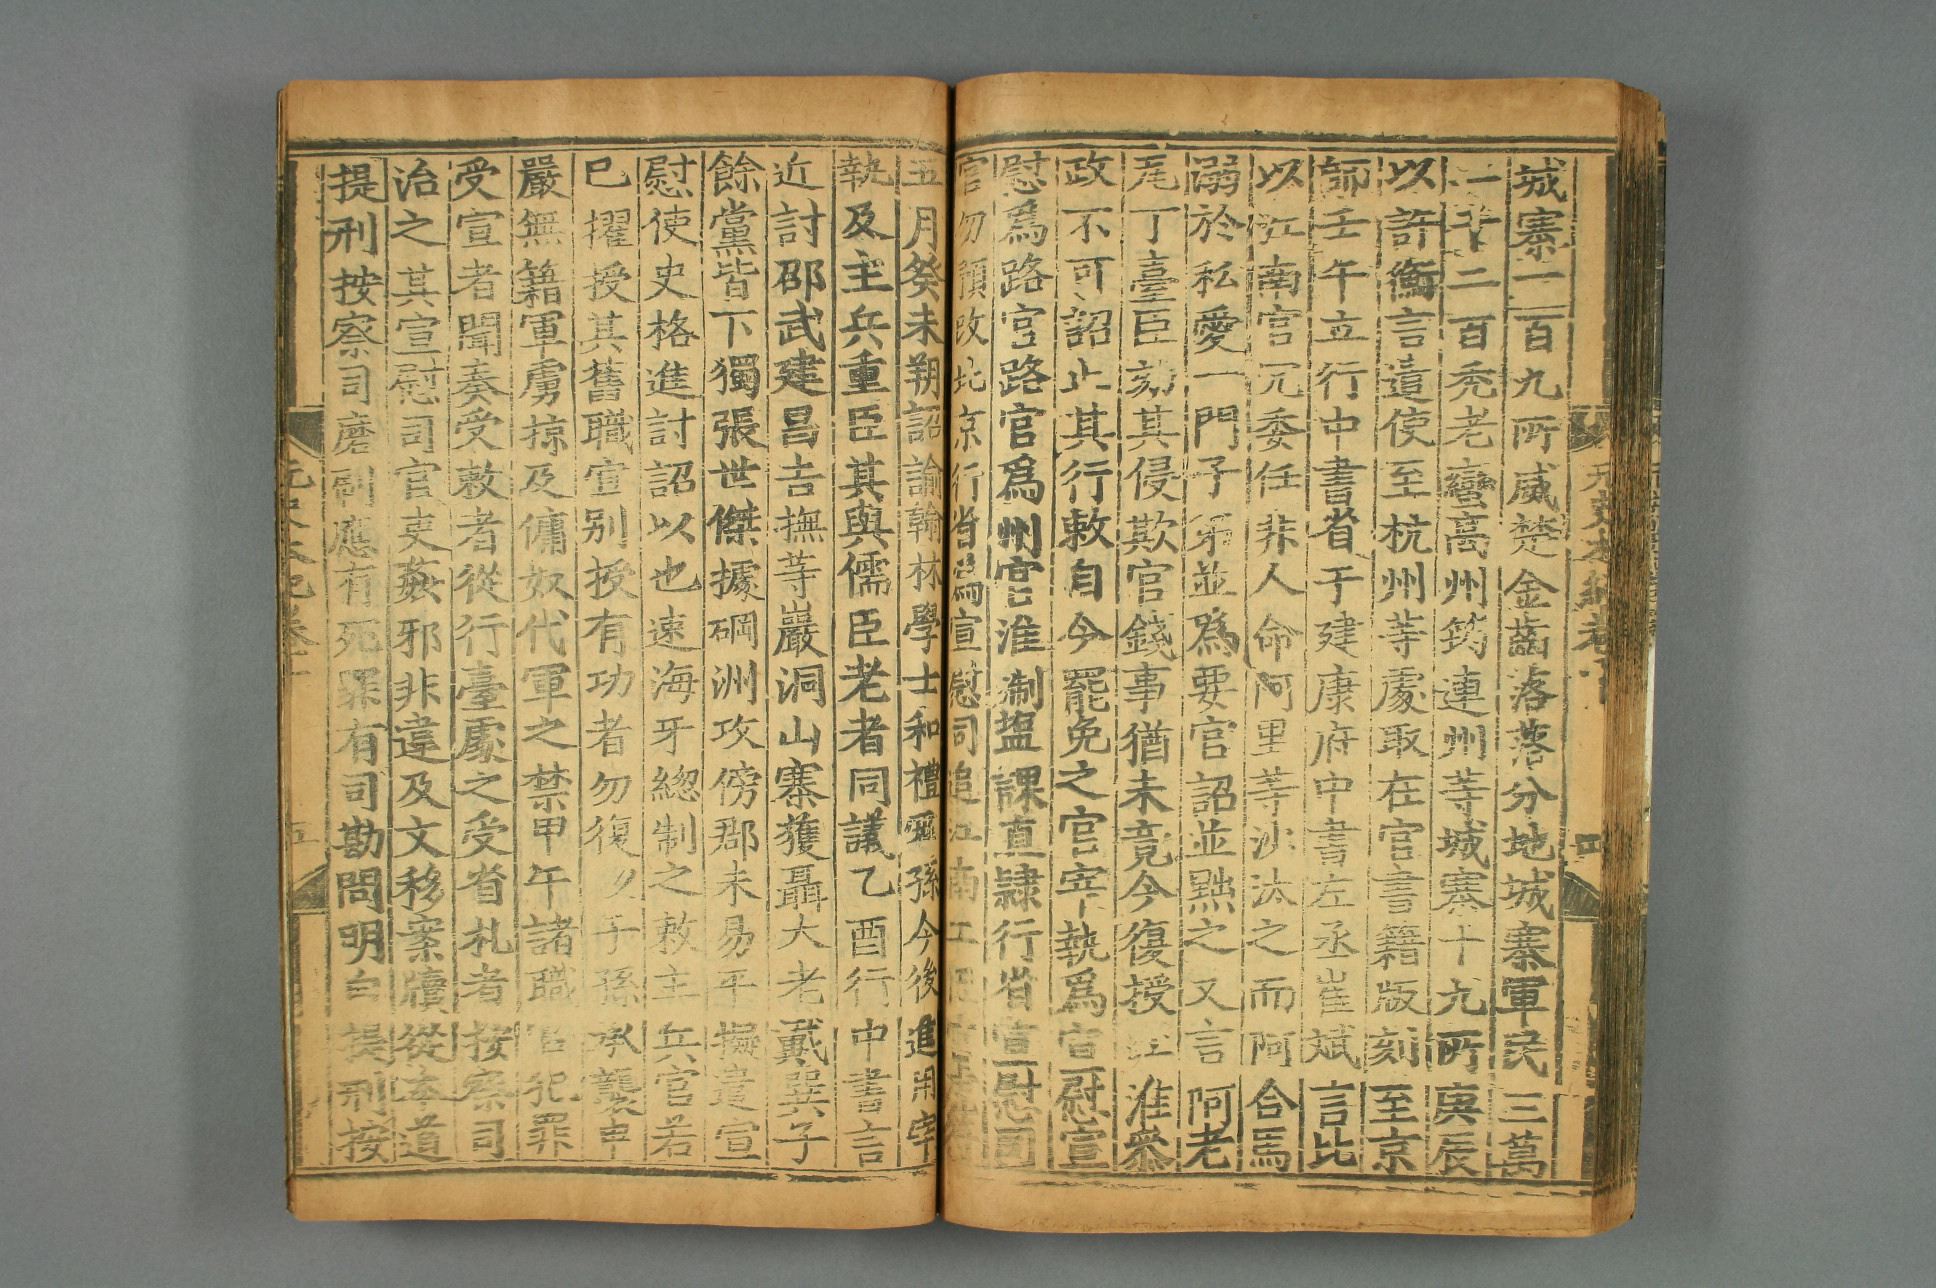 城寨一百九所威楚金齒落落分地城寨軍民三萬
二千二百禿老蠻高州筠連州等城寨十九所庚辰
以許衡言遣使至杭州等處取在官書籍版刻至京
師壬午立行中書省于建康府中書左丞崔斌言比
以江南官冗委任非人命阿里等沙汰之而阿合馬
溺於私愛一門子弟並爲要官詔並黜之又言阿老
瓦丁臺臣劾其侵欺官錢事猶未竟今復授江淮參
政不可詔止其行敕自今罷免之官宰執爲宣慰宣
慰爲路官路官爲州官淮浙塩課直隸行省宣慰司
官勿預改北京行省爲宣慰司追江南工
五月癸未朔詔諭翰林學士和禮霍孫今後進用宰
執及主兵重臣其與儒臣老者同議乙酉行中書言
近討邵武建昌吉撫等巖洞山寨獲聶大老戴巽子
餘黨皆下獨張世傑據碙洲攻傍郡未易平擬遣宣
慰使史格進討詔以也速海牙總制之敕主兵官若
已擢授其舊職宣別授有功者勿復以子孫承襲申
嚴無籍軍虜掠及傭奴代軍之禁甲午諸職官犯罪
受宣者聞奏受敕者從行臺處之受省札者按察司
治之其宣慰司官吏姦邪非違及文移案牘從本道
提刑按察司磨刷應有死罪有司勘問明白提刑按
元史本紀卷十
五